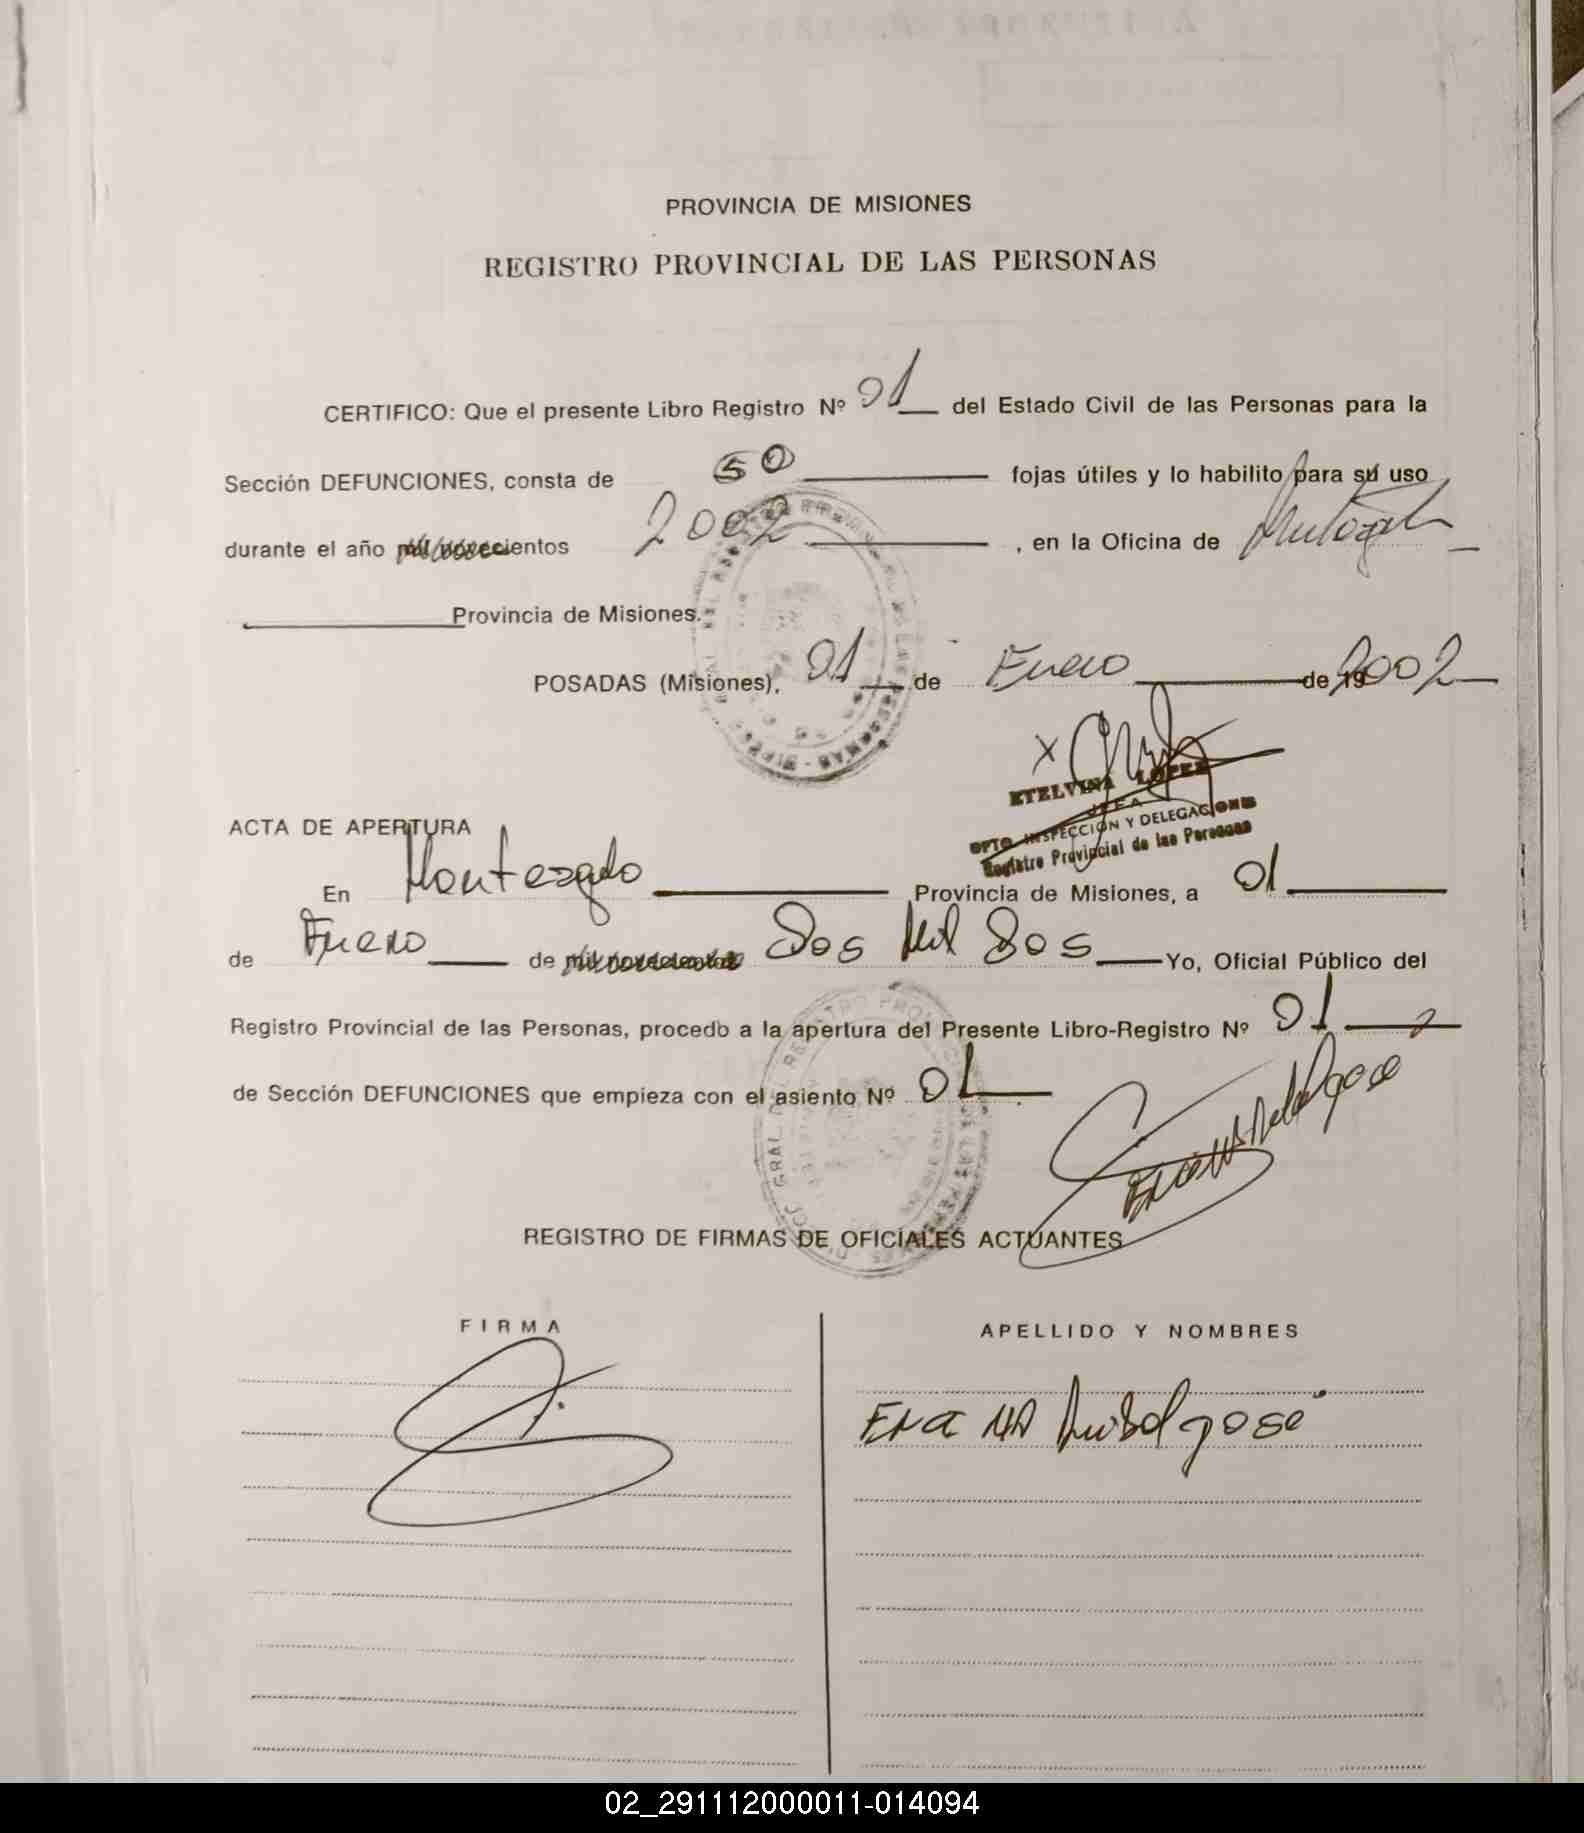 PROVINCIA DE MISIONES
REGISTRO PROVINCIAL DE LAS PERSONAS
CERTIFICO: Que el presente Libro Registro Nº 01 del Estado Civil de las Personas para la
Sección DEFUNCIONES, consta de 50 fojas útiles y lo habilito para su uso
durante el año mil novecientos 2002, en la Oficina de
Provincia de Misiones.
POSADAS (Misiones), 01 de Enero de 19 2002
ETELVINA LOPEZ
JEFA
DPTO. INSPECCIÓN Y DELEGACIONES
Registro Provincial de las Personas
ACTA DE APERTURA
En Monteagudo Provincia de Misiones, a 01
de Enero de mil novecientos Dos Mil Dos Yo, Oficial Público del
Registro Provincial de las Personas, procedo a la apertura del Presente Libro-Registro Nº 01
de Sección DEFUNCIONES que empieza con el asiento Nº 01
REGISTRO DE FIRMAS DE OFICIALES ACTUANTES
FIRMA
APELLIDO Y NOMBRES
José
02_291112000011-014094